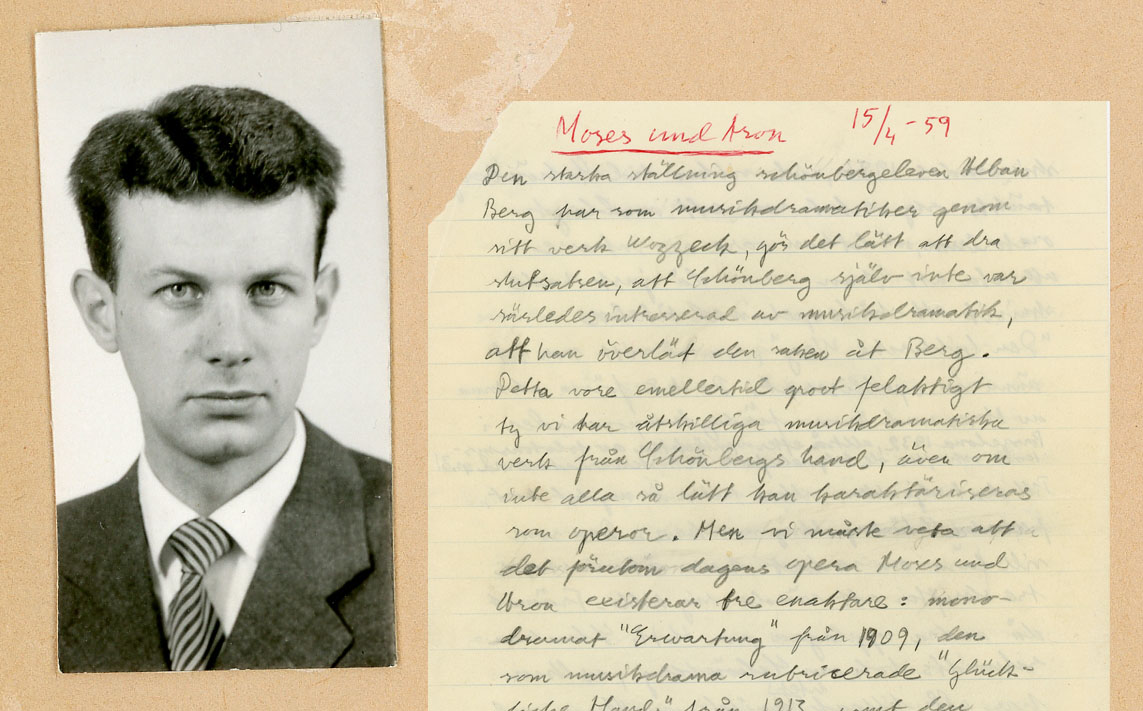 Moses und Aron 15/4-59
Den starka ställning schönbergeleven Alban
Berg har som musikdramatiker genom
sitt verk Wozzeck, gör det lätt att dra
slutsatsen, att Schönberg själv inte var
särledes intresserad av musikdramatik,
att han överlät den saken åt Berg.
Detta vore emellertid grovt felaktigt
ty vi har åtskilliga musikdramatiska
verk från Schönbergs hand, även om
inte alla så lätt kan karaktäriseras
som operor. Men vi måste veta att
det förutom dagens opera Moses und
Aron existerar tre enaktare: mono-
dramat "Erwartung" från 1909, den
som musikdrama rubricerade "Glück-
liche Hand" från 1913, samt den